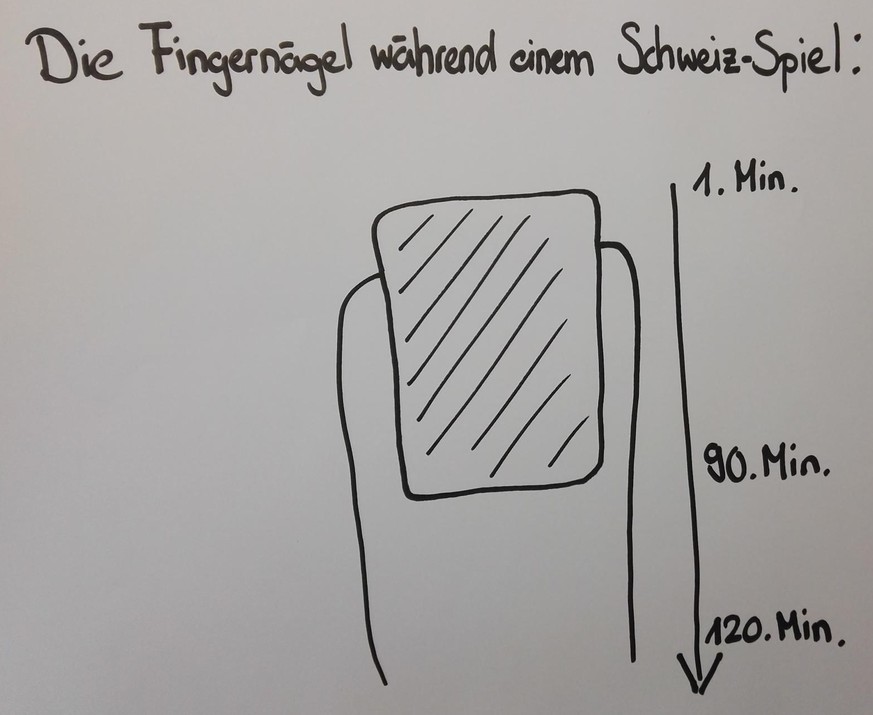 Die Fingernägel während einem Schweiz-Spiel:
1. Min.
90. Min.
120. Min.